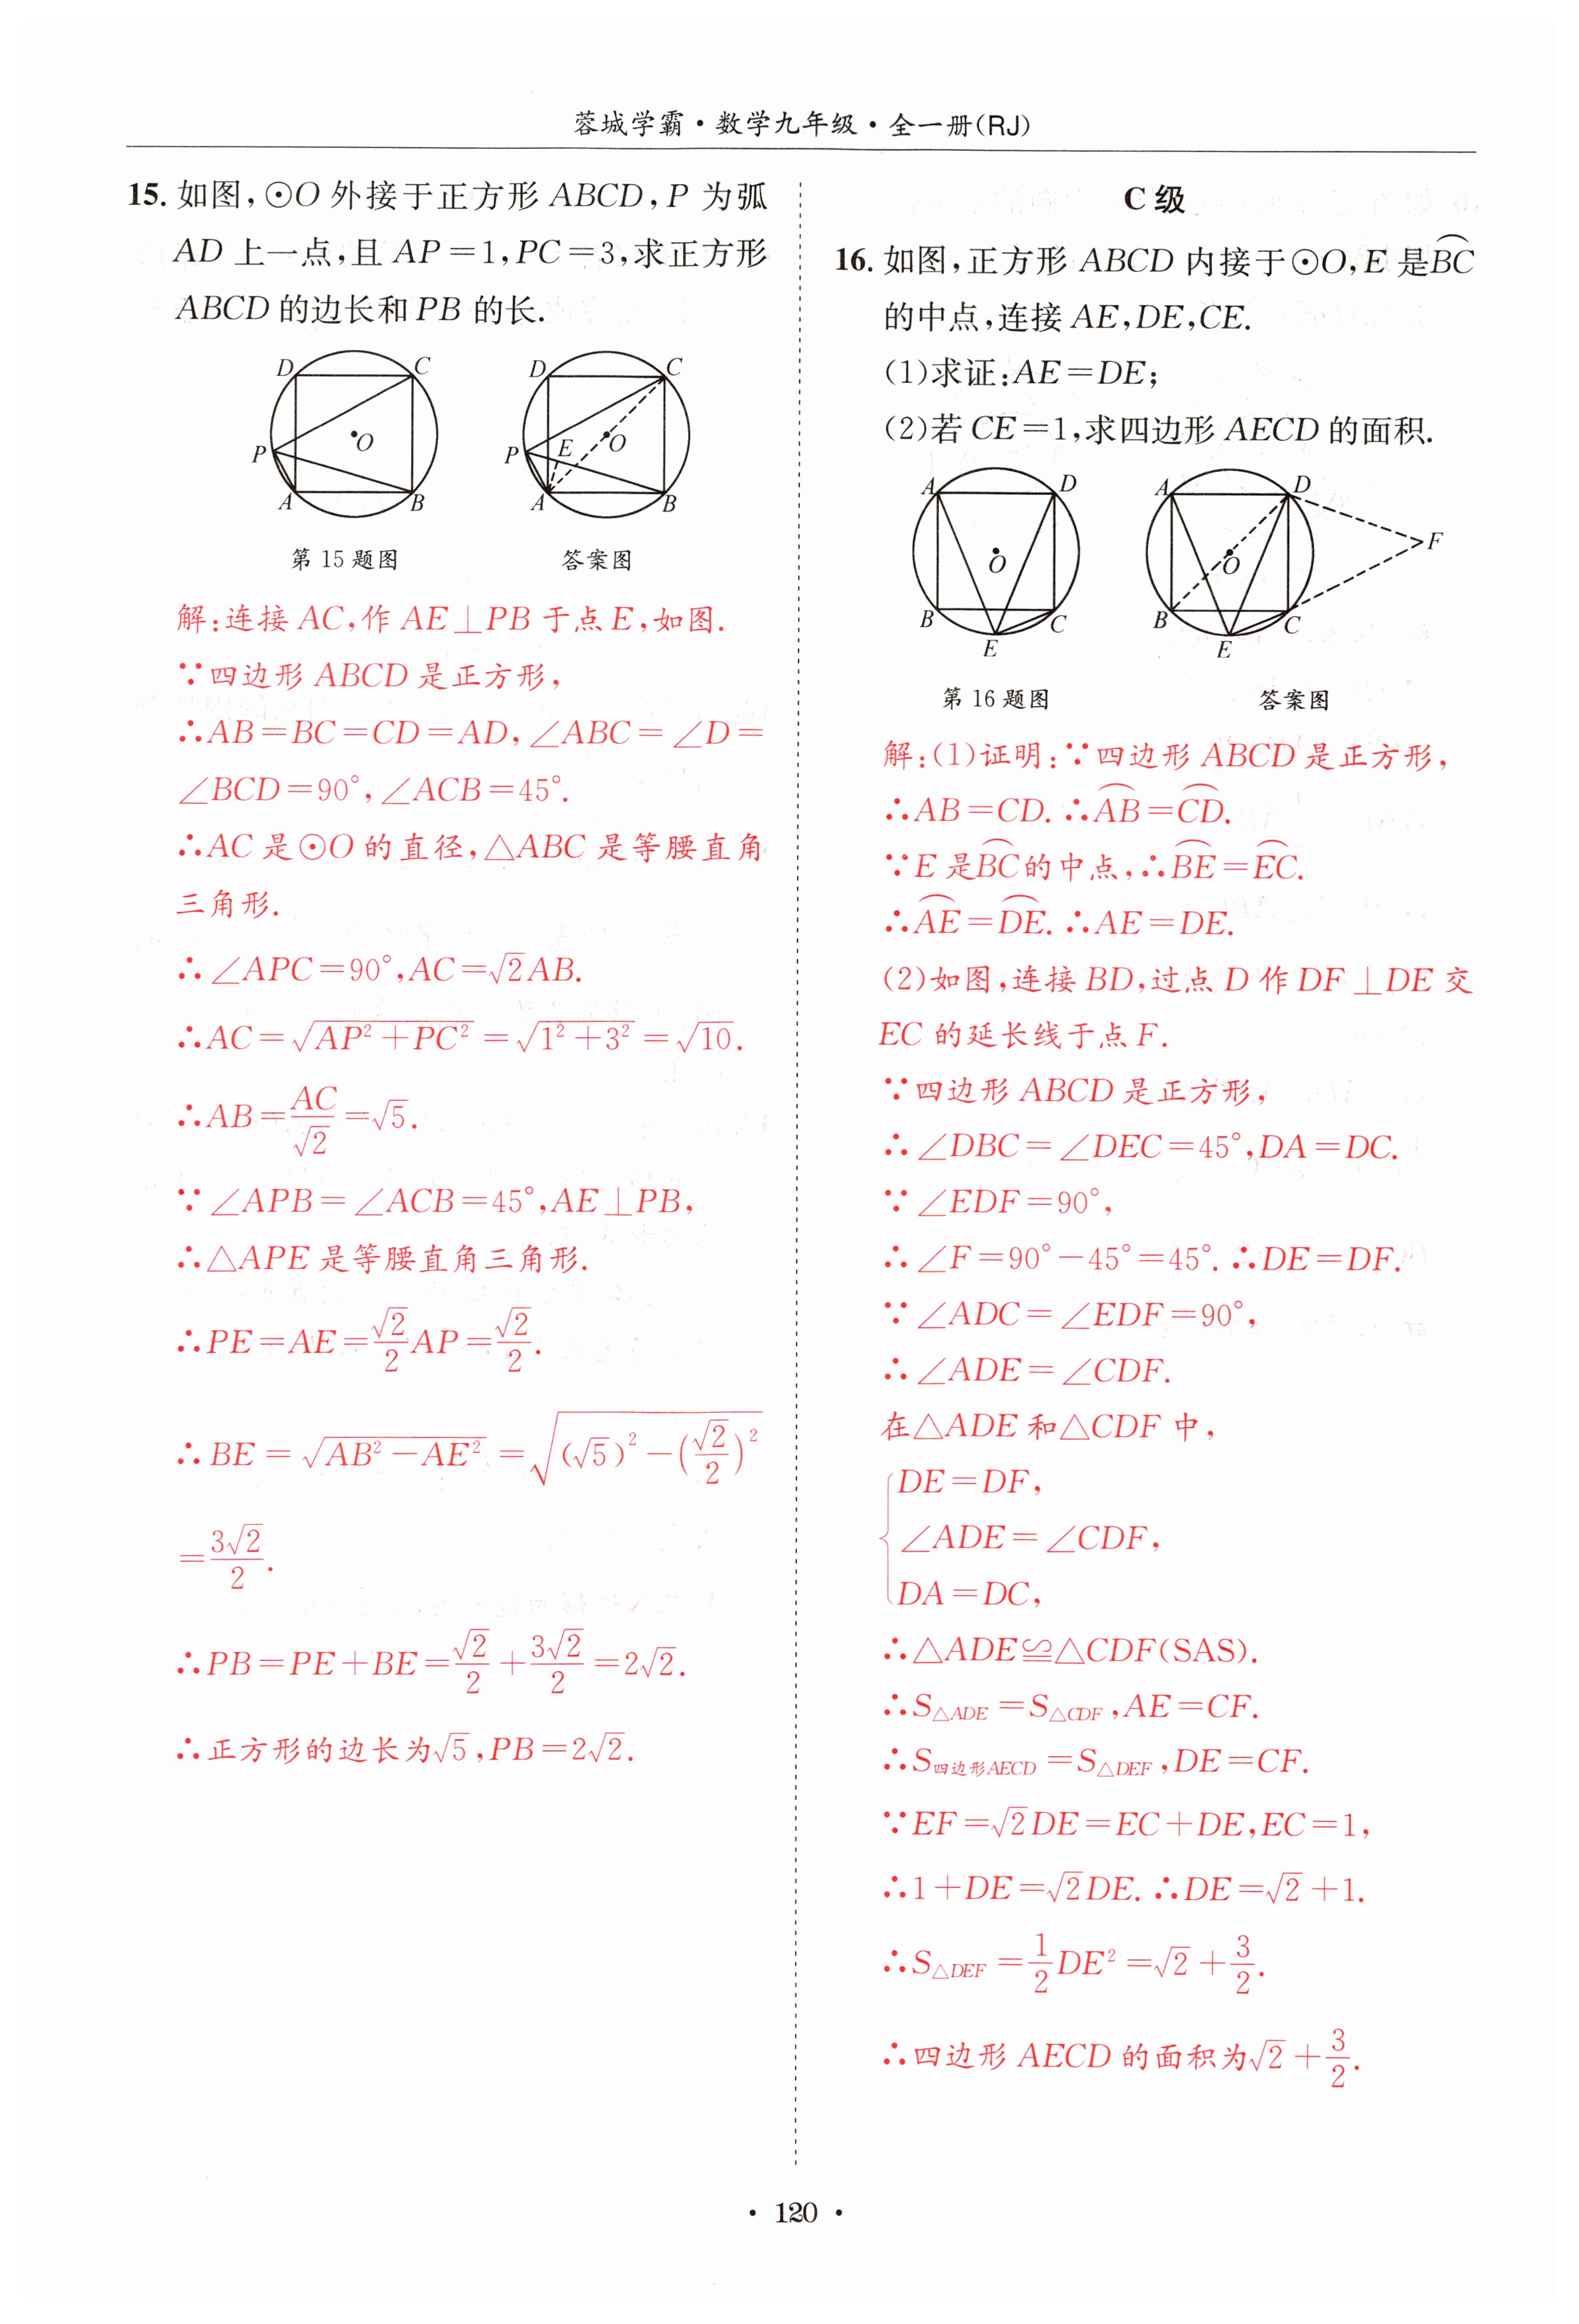 蓉城学霸·数学九年级·全一册(RJ)
15. 如图,⊙O 外接于正方形 ABCD,P 为弧
AD 上一点,且 AP=1,PC=3,求正方形
ABCD 的边长和 PB 的长.
D C P O A B
D C P E O A B
第 15 题图 答案图
解:连接 AC,作 AE⊥PB 于点 E,如图.
∵四边形 ABCD 是正方形,
∴AB=BC=CD=AD,∠ABC=∠D=
∠BCD=90°,∠ACB=45°.
∴AC 是⊙O 的直径,△ABC 是等腰直角
三角形.
∴∠APC=90°,AC=√2AB.
∴AC=√(AP²+PC²)=√(1²+3²)=√10.
∴AB=AC/√2=√5.
∵∠APB=∠ACB=45°,AE⊥PB,
∴△APE 是等腰直角三角形.
∴PE=AE=√2/2AP=√2/2.
∴BE=√(AB²-AE²)=√((√5)²-(√2/2)²)
=3√2/2.
∴PB=PE+BE=√2/2+3√2/2=2√2.
∴正方形的边长为√5,PB=2√2.
C 级
16. 如图,正方形 ABCD 内接于⊙O,E 是⌒BC
的中点,连接 AE,DE,CE.
(1)求证:AE=DE;
(2)若 CE=1,求四边形 AECD 的面积.
A D O B C E
A D F O B C E
第 16 题图 答案图
解:(1)证明:∵四边形 ABCD 是正方形,
∴AB=CD.∴⌒AB=⌒CD.
∵E 是⌒BC的中点,∴⌒BE=⌒EC.
∴⌒AE=⌒DE.∴AE=DE.
(2)如图,连接 BD,过点 D 作 DF⊥DE 交
EC 的延长线于点 F.
∵四边形 ABCD 是正方形,
∴∠DBC=∠DEC=45°,DA=DC.
∵∠EDF=90°,
∴∠F=90°-45°=45°.∴DE=DF.
∵∠ADC=∠EDF=90°,
∴∠ADE=∠CDF.
在△ADE 和△CDF 中,
{DE=DF,
∠ADE=∠CDF,
DA=DC,
∴△ADE≌△CDF(SAS).
∴S△ADE=S△CDF,AE=CF.
∴S四边形AECD=S△DEF,DE=CF.
∵EF=√2DE=EC+DE,EC=1,
∴1+DE=√2DE.∴DE=√2+1.
∴S△DEF=1/2DE²=√2+3/2.
∴四边形 AECD 的面积为√2+3/2.
·120·